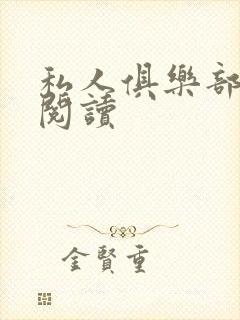 私人俱樂部
閱讀
金賢重